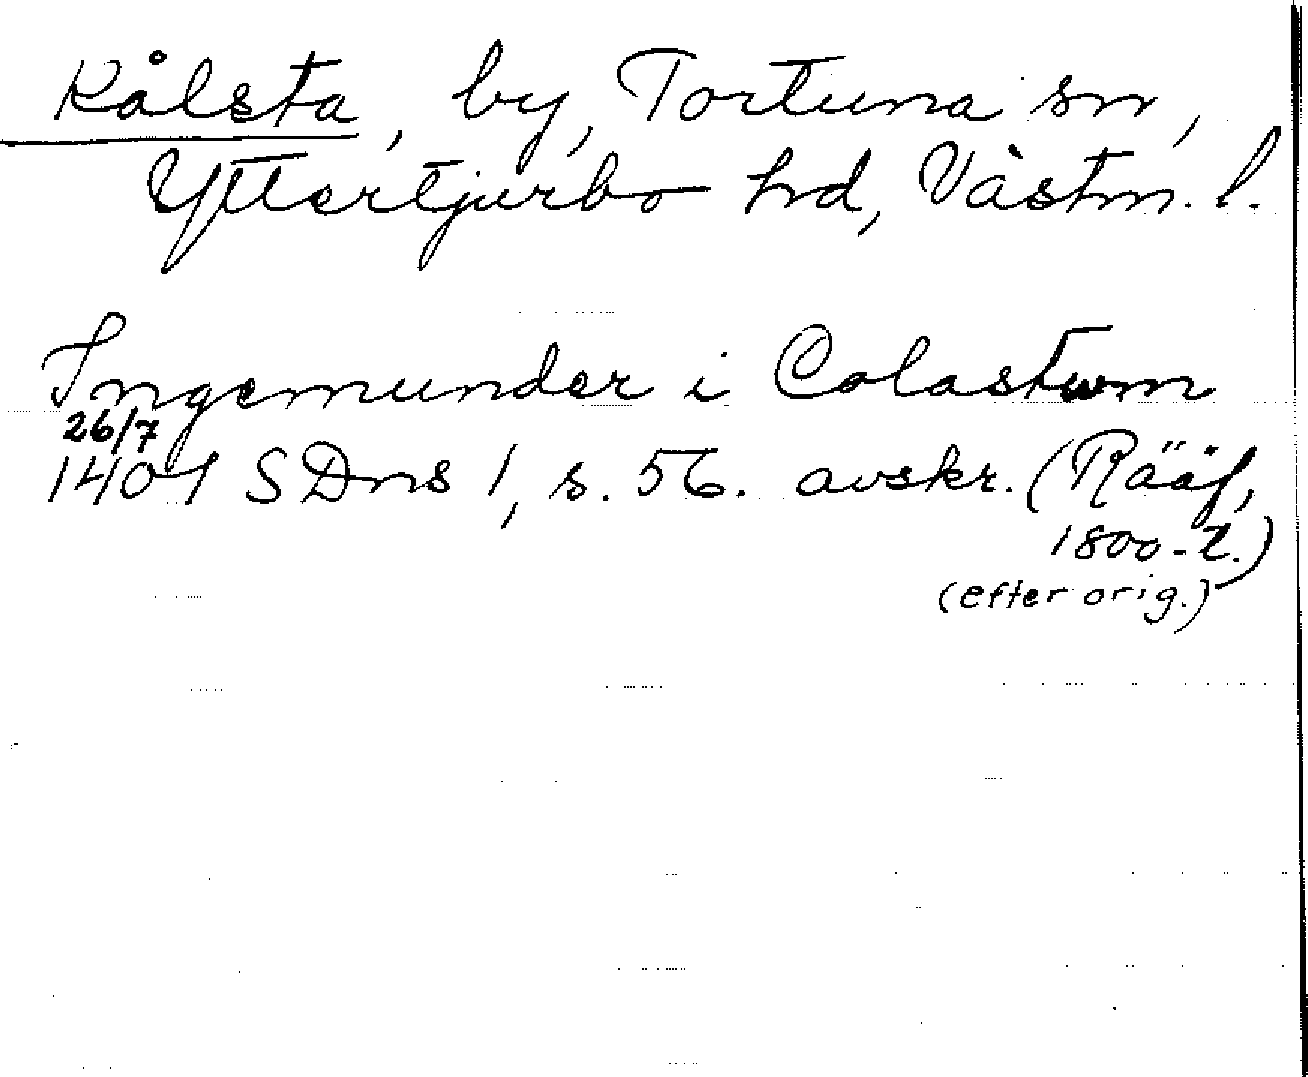 Kålsta, by, Tortuna sn,
Yttertjurbo hd, Västm. l.
Ingemunder i Colastum
26/7
1401 SDns 1, s. 56. avskr. (Rääf,
1800-t.)
(efter orig.)